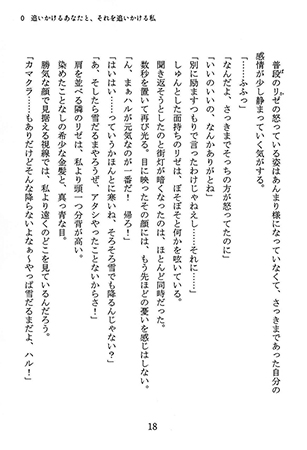 0 追いかけるあなたと、それを追いかける私
普段のリゼの怒っている姿はあんまり様になっていなくて、さっきまであった自分の
感情が少し静まっていく気がする。
「……ふふっ」
「なんだよ、さっきまでそっちの方が怒ってたのに」
「いいのいいの、なんかありがとね」
「別に励ますつもりで言ったわけじゃねえし……それに……」
しゅんとした面持ちのリゼは、ぼそぼそと何かを呟いている。
聞き返そうとしたのと街灯が暗くなったのは、ほとんど同時だった。
数秒を置いて再び光る。目に映ったその顔には、もう先ほどの憂いを感じはしない。
「ん、まぁハルが元気なのが一番だ！　帰ろ！」
「はいはい……っていうかほんとに寒いね、そろそろ雪でも降るんじゃない？」
「あ、そしたら雪だるまやろうぜ、アタシやったことないからさ！」
肩を並べる隣のリゼは、私より頭一つ分背が高い。
染めたことなしの希少な金髪と、真っ青な目。
勝気な顔で見据える視線では、私より遠くのどこを見ているんだろう。
「カマクラ……もありだけどそんな降らないよなぁ～やっぱ雪だるまだよ、ハル！」
18